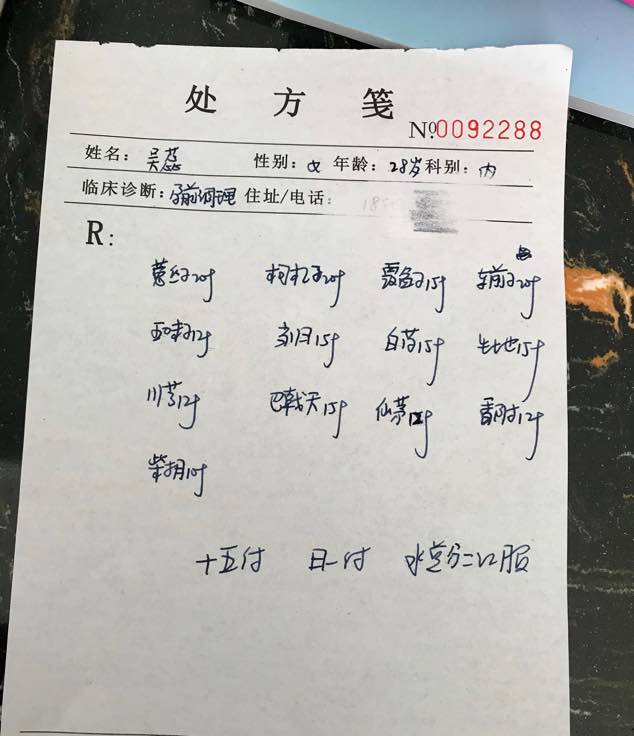 处方笺
№0092288
姓名：吴蕊 性别：女 年龄：28岁 科别：内
临床诊断：孕前调理 住址/电话：
R：
菟丝子20g 枸杞子20g 覆盆子15g 车前子20g
五味子12g 当归15g 白芍15g 生地15g
川芎12g 巴戟天15g 仙茅12g 香附12g
柴胡10g
十五付 日一付 水煎分二口服